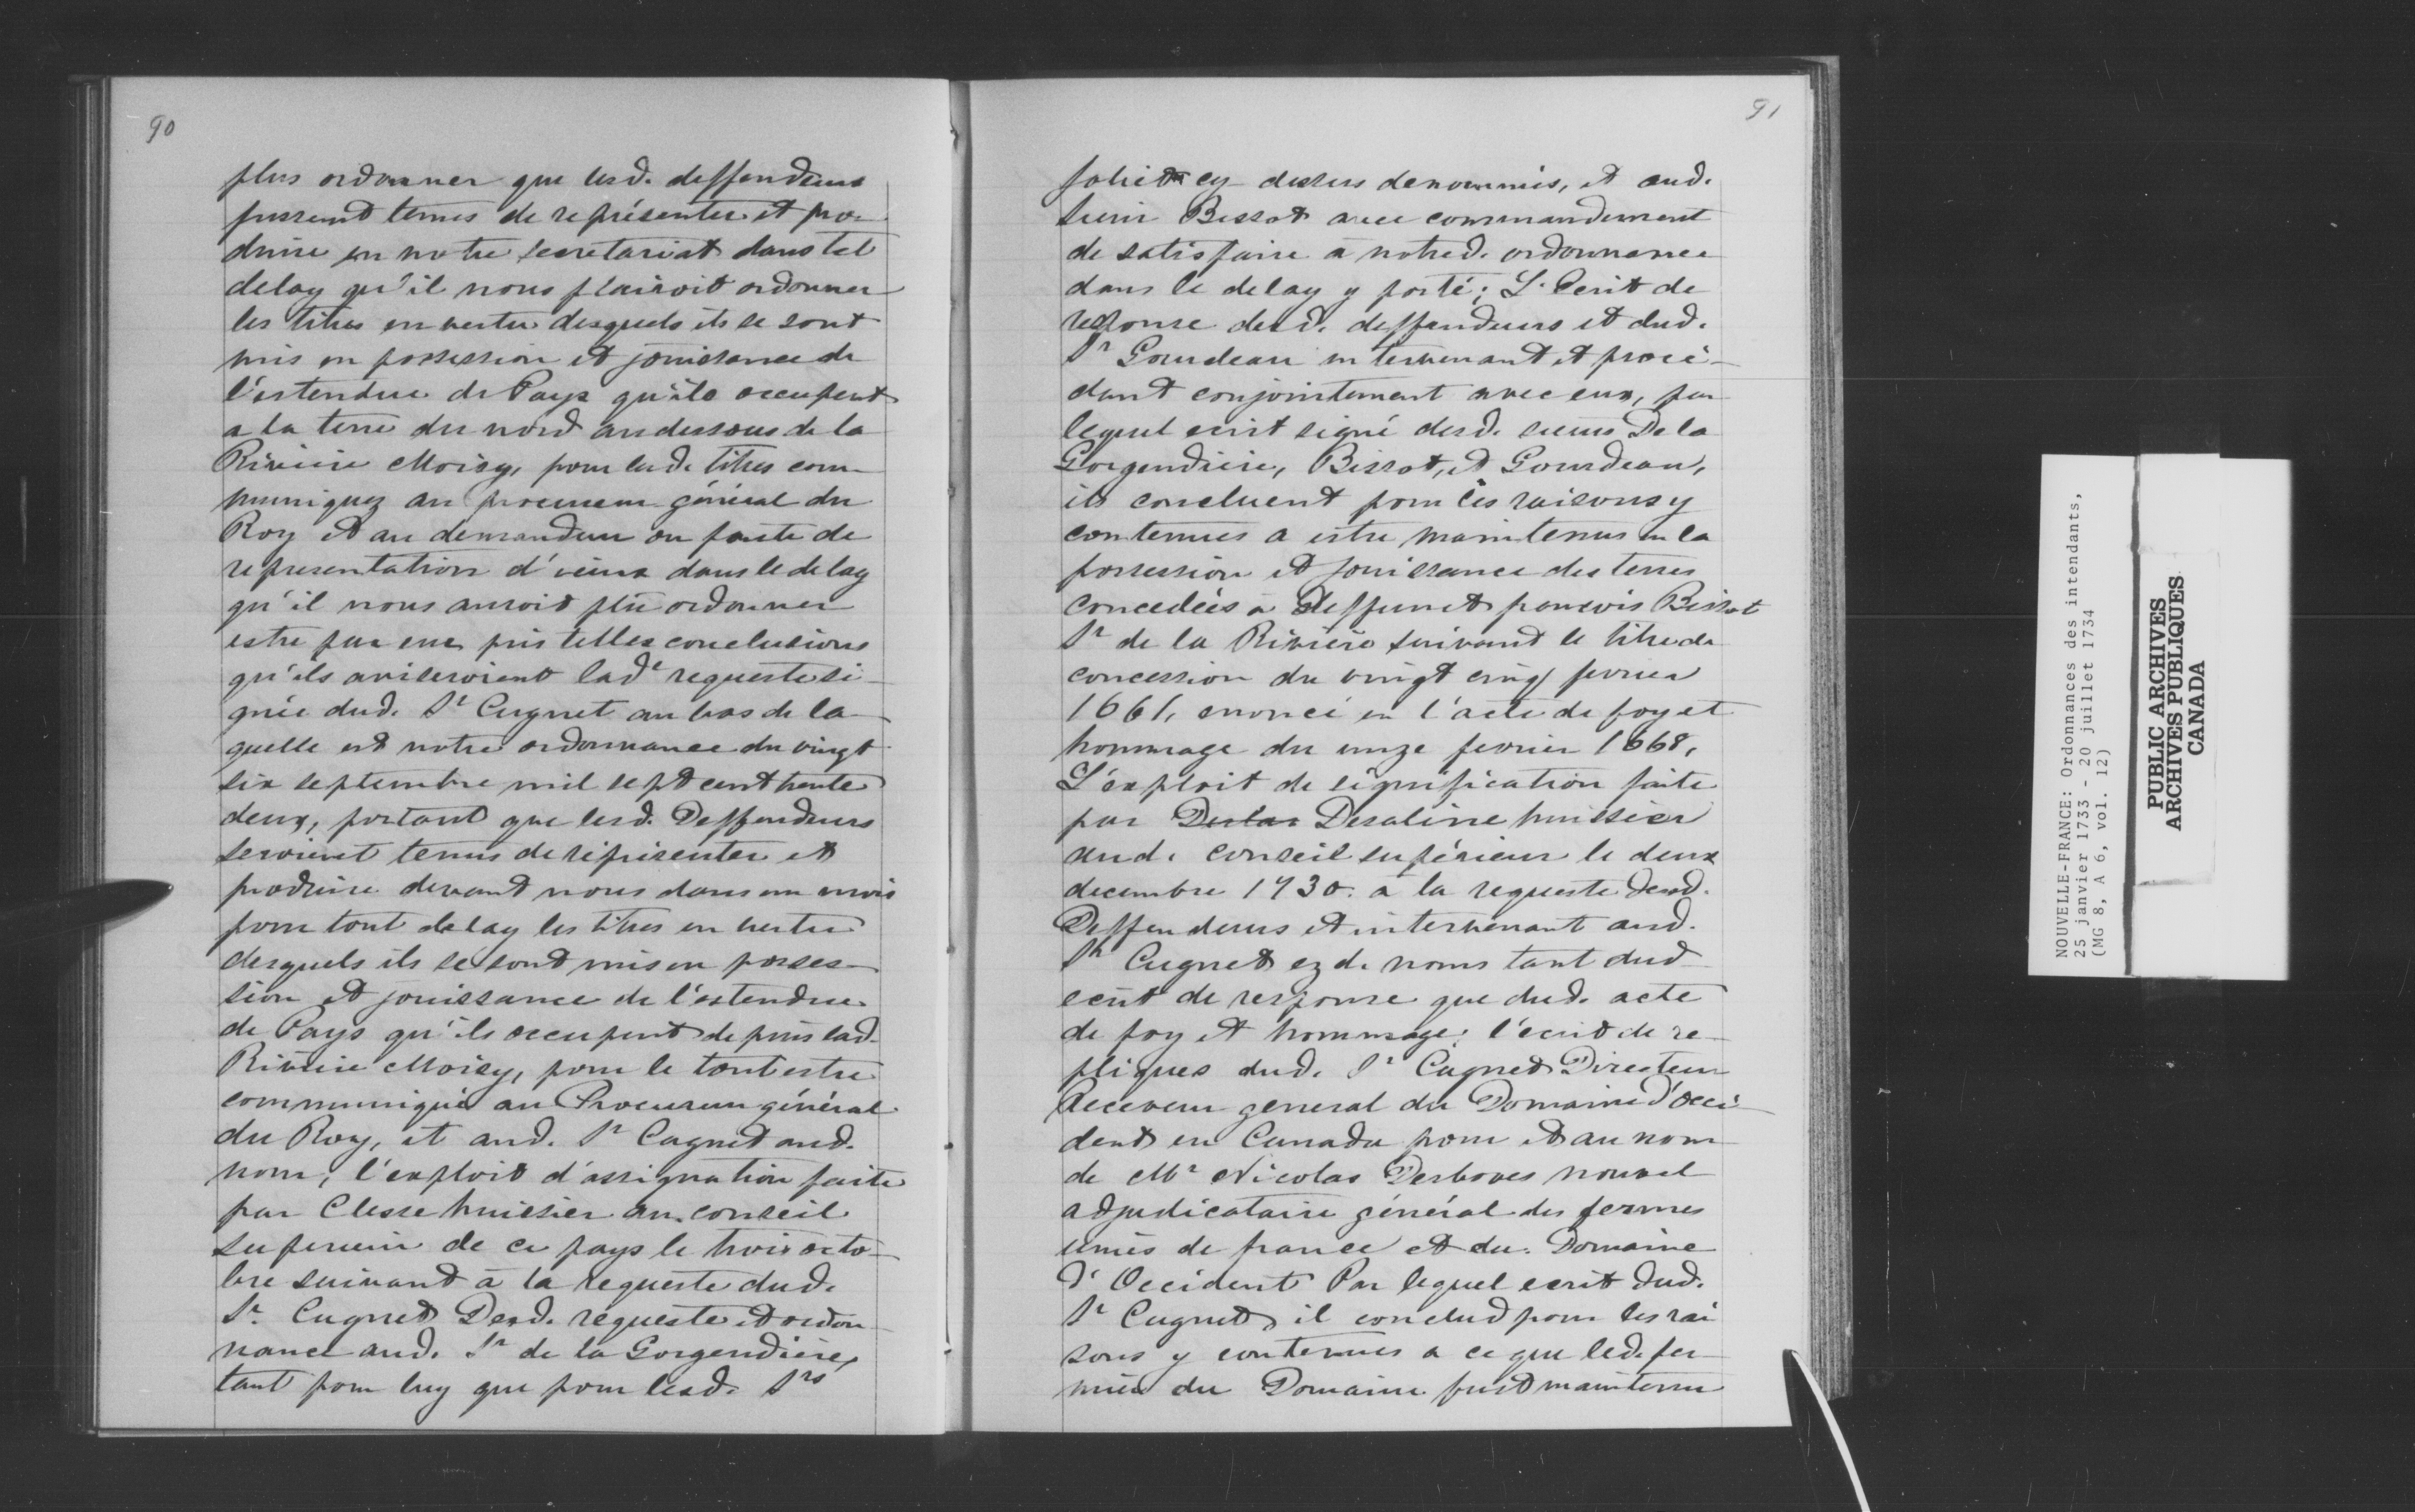 90
plus ordonner que lesd. deffendeurs
fussent tenus de représenter et pro-
duire en notre secretariat dans tel
delay qu'il nous plairoit ordonner
les titres en vertu desquels ils se sont
mis en possession et jouissance de
l'estendue de Pays qu'ils occupent
a la terre du nord au dessous de la
Riviere Moisy, pour lesd. titres com-
muniquez au procureur général du
Roy et au demandeur ou faute de
representation d'iceux dans le delay
qu'il nous auroit plû ordonner
estre par eux pris telles conclusions
qu'ils aviseroient lad.e requeste si-
gnée dud. Sr Cugnet au bas de la-
quelle est notre ordonnance du vingt
six septembre mil sept cent trente
deux, portant que lesd. Deffendeurs
seroient tenus de réprésenter et
produire devant nous dans un mois
pour tout delay les titres en vertu
desquels ils se sont mis en posses-
sion et jouissance de l'estendue
de Pays qu'ils occupent depuis lad.
Riviere Moisy, pour le tout estre
communiqué au Procureur général
du Roy, et aud. Sr Cugnet aud.
nom, l'exploit d'assignation faite
par Clesse huissier au conseil
superieur de ce pays le trois octo-
bre suivant à la requeste dud.
Sr. Cugnet Desd. requeste et ordon-
nance aud. Sr de la Gorgendière,
tant pour luy que pour lesd. Srs
91
Joliet cy dessus denommés, et aud.
sieur Bissot avec commandement
de satisfaire à notred. ordonnance
dans le delay y porté; L'Ecrit de
response desd. deffendeurs et dud.
Sr Gourdeau intervenant et procé-
dant conjointement avec eux, par
lequel ecrit signé desd. sieurs De la
Gorgendière, Bissot, et Gourdeau,
ils concluent pour les raisons y
contenues a estre maintenus en la
possession et jouissance des terres
concedées à deffunct françois Bissot
Sr de la Rivière suivant le titre de
concession du vingt cinq fevrier
1661, enoncé en l'acte de foy et
hommage du unze fevrier 1668,
L'exploit de signification faite
par Deslar Desaline huissier
aud. conseil supérieur le deux
decembre 1730. à la requeste desd.
Deffendeurs et intervenant aud.
Sr Cugnet ezd. noms tant dud
ecrit de response que dud. acte
de foy et hommage; l'écrit de re-
pliques dud. Sr Cugnet Directeur
Receveur general du Domaine d'Occi-
dent en Canada pour et au nom
de Mr Nicolas Desboves nouvel
adjudicataire général des fermes
unies de france et du Domaine
d'Occident Par lequel ecrit dud.
Sr Cugnet, il conclud pour les rai
sons y contenues a ce que led. fer-
mier du Domaine fust maintenu
NOUVELLE-FRANCE: Ordonnances des intendants,
25 janvier 1733 - 20 juillet 1734
(MG 8, A 6, vol. 12)
PUBLIC ARCHIVES
ARCHIVES PUBLIQUES
CANADA